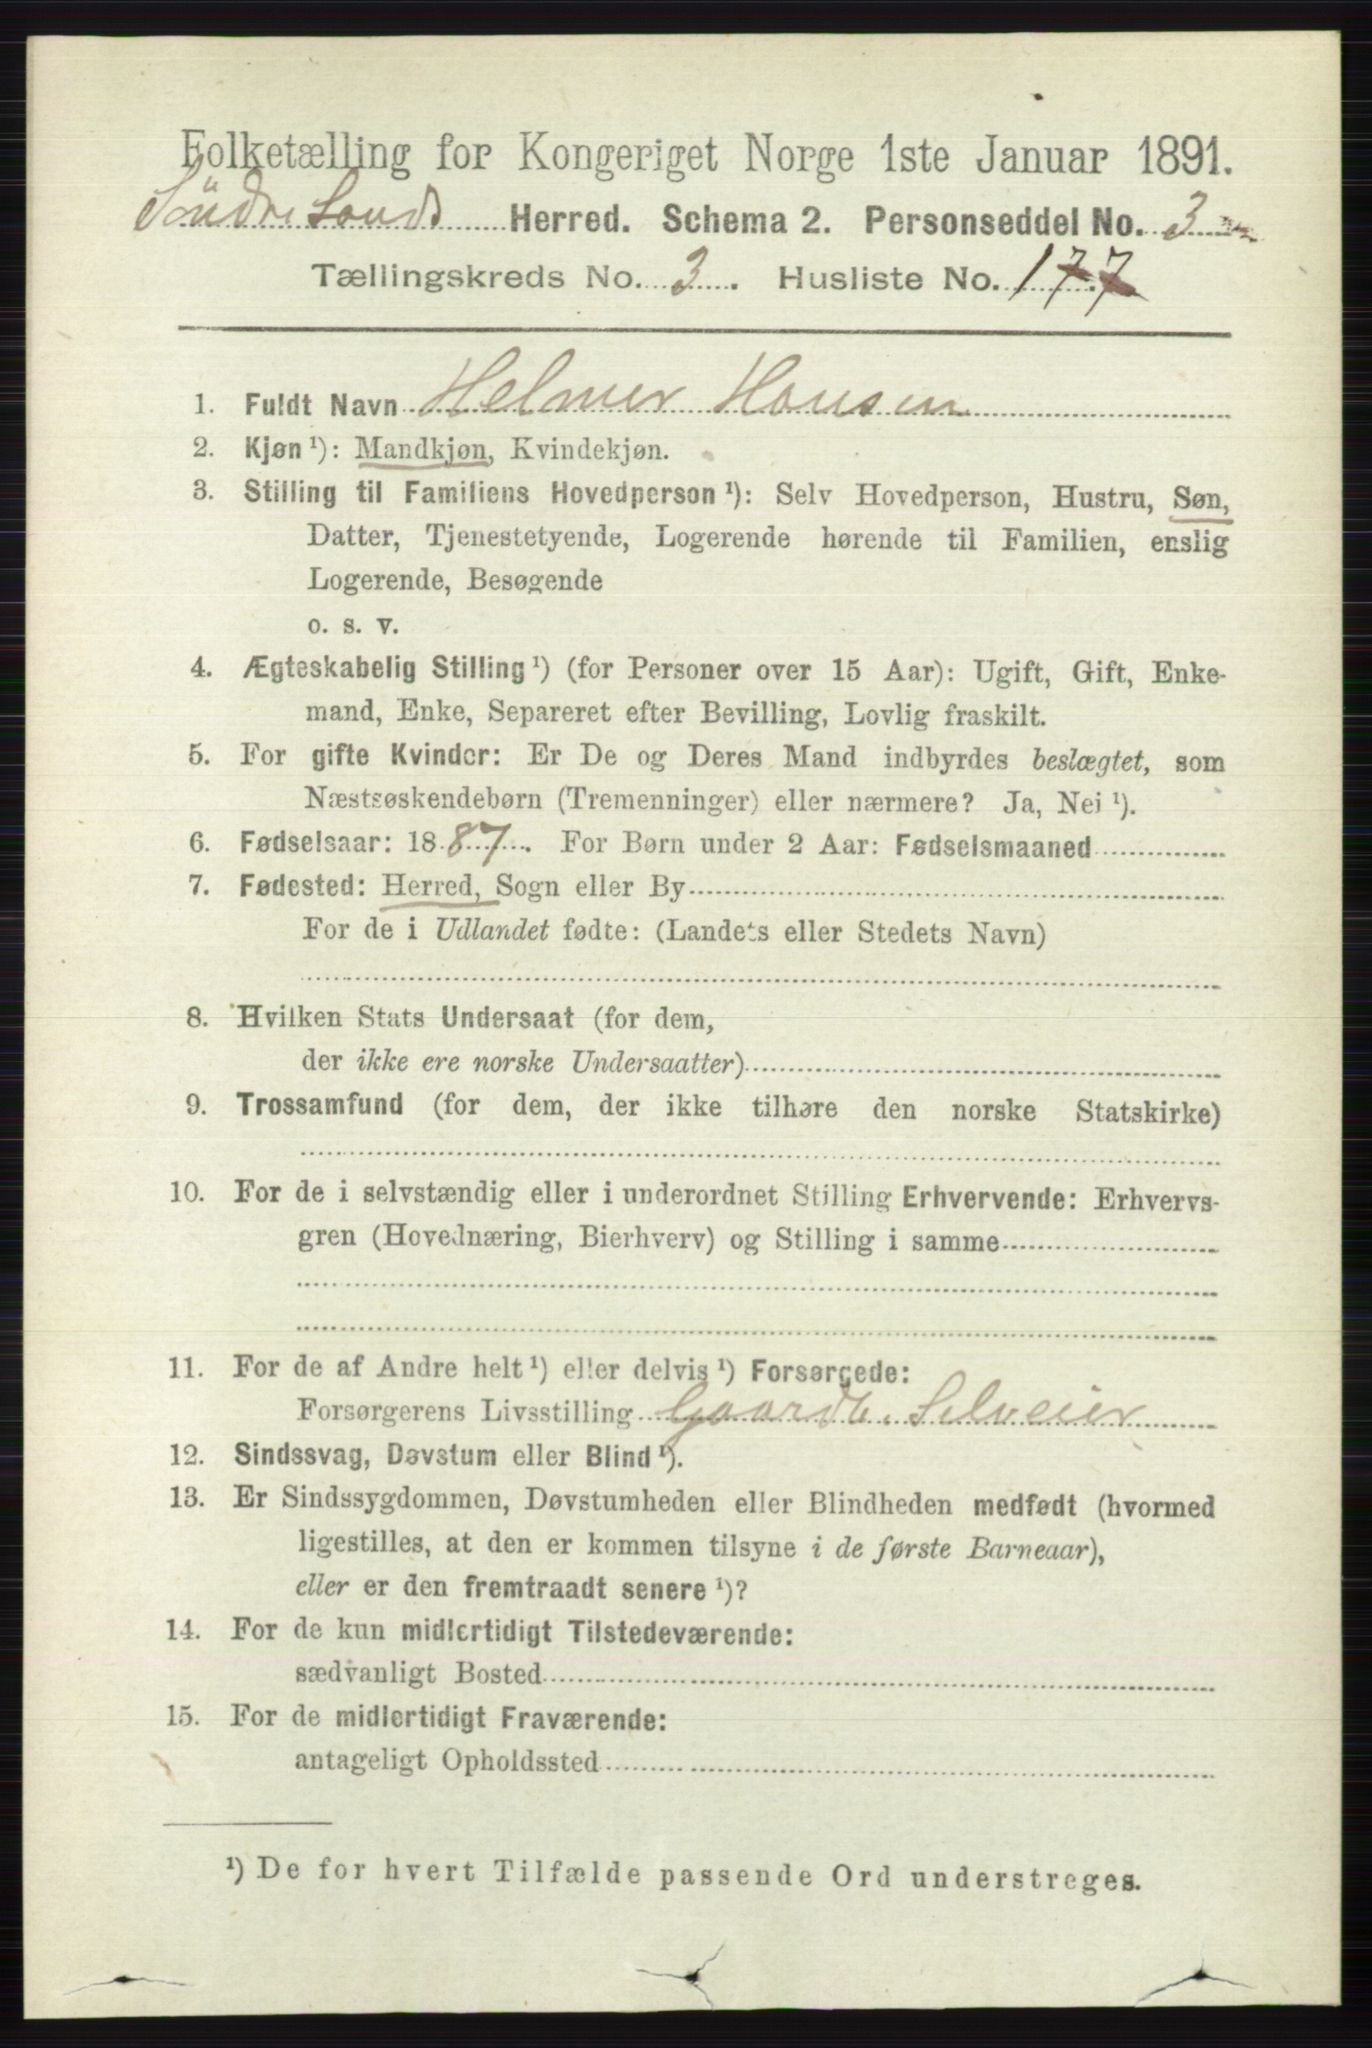 Folketælling for Kongeriget Norge 1ste Januar 1891.
Søndre Lands Herred. Schema 2. Personseddel No. 3
Tællingskreds No. 3. Husliste No. 177
1. Fuldt Navn Helmer Hansen
2. Kjøn ¹): Mandkjøn, Kvindekjøn.
3. Stilling til Familiens Hovedperson ¹): Selv Hovedperson, Hustru, Søn,
Datter, Tjenestetyende, Logerende hørende til Familien, enslig
Logerende, Besøgende
o. s. v.
4. Ægteskabelig Stilling ¹) (for Personer over 15 Aar): Ugift, Gift, Enke-
mand, Enke, Separeret efter Bevilling, Lovlig fraskilt.
5. For gifte Kvinder: Er De og Deres Mand indbyrdes beslægtet, som
Næstsøskendebørn (Tremenninger) eller nærmere? Ja, Nei ¹).
6. Fødselsaar: 1887. For Børn under 2 Aar: Fødselsmaaned
7. Fødested: Herred, Sogn eller By
For de i Udlandet fødte: (Landets eller Stedets Navn)
8. Hvilken Stats Undersaat (for dem,
der ikke ere norske Undersaatter)
9. Trossamfund (for dem, der ikke tilhøre den norske Statskirke)
10. For de i selvstændig eller i underordnet Stilling Erhvervende: Erhvervs-
gren (Hovednæring, Bierhverv) og Stilling i samme
11. For de af Andre helt ¹) eller delvis ¹) Forsørgede:
Forsørgerens Livsstilling Gaardb. Selveier
12. Sindssvag, Døvstum eller Blind ¹).
13. Er Sindssygdommen, Døvstumheden eller Blindheden medfødt (hvormed
ligestilles, at den er kommen tilsyne i de første Barneaar),
eller er den fremtraadt senere ¹)?
14. For de kun midlertidigt Tilstedeværende:
sædvanligt Bosted
15. For de midlertidigt Fraværende:
antageligt Opholdssted
¹) De for hvert Tilfælde passende Ord understreges.